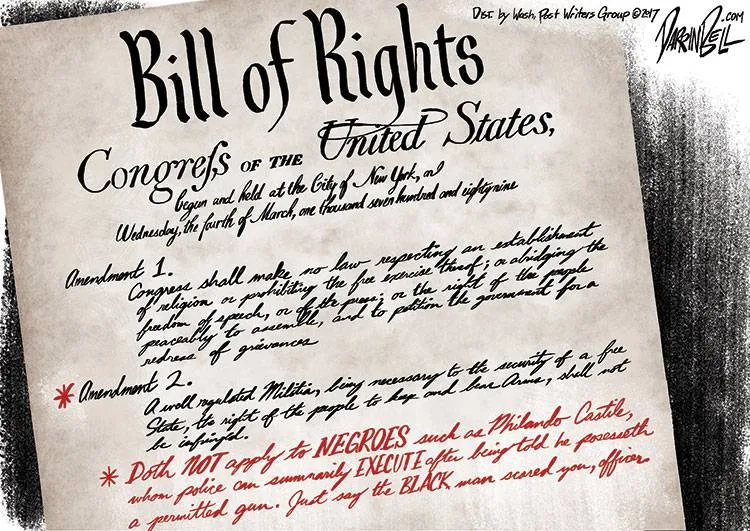 Dist. by Wash. Post Writers Group © 2017
DARRINBELL.COM
Bill of Rights
Congreſs OF THE United States,
begun and held at the City of New York, on
Wednesday, the fourth of March, one thousand seven hundred and eighty nine
Amendment 1.
Congress shall make no law respecting an establishment
of religion or prohibiting the free exercise thereof; or abridging the
freedom of speech, or of the press; or the right of the people
peaceably to assemble, and to petition the government for a
redress of grievances
* Amendment 2.
A well regulated Militia, being necessary to the security of a free
State, the right of the people to keep and bear Arms, shall not
be infringed.
* Doth NOT apply to NEGROES such as Philando Castile,
whom police can summarily EXECUTE after being told he posesseth
a permitted gun. Just say the BLACK man scared you, officer